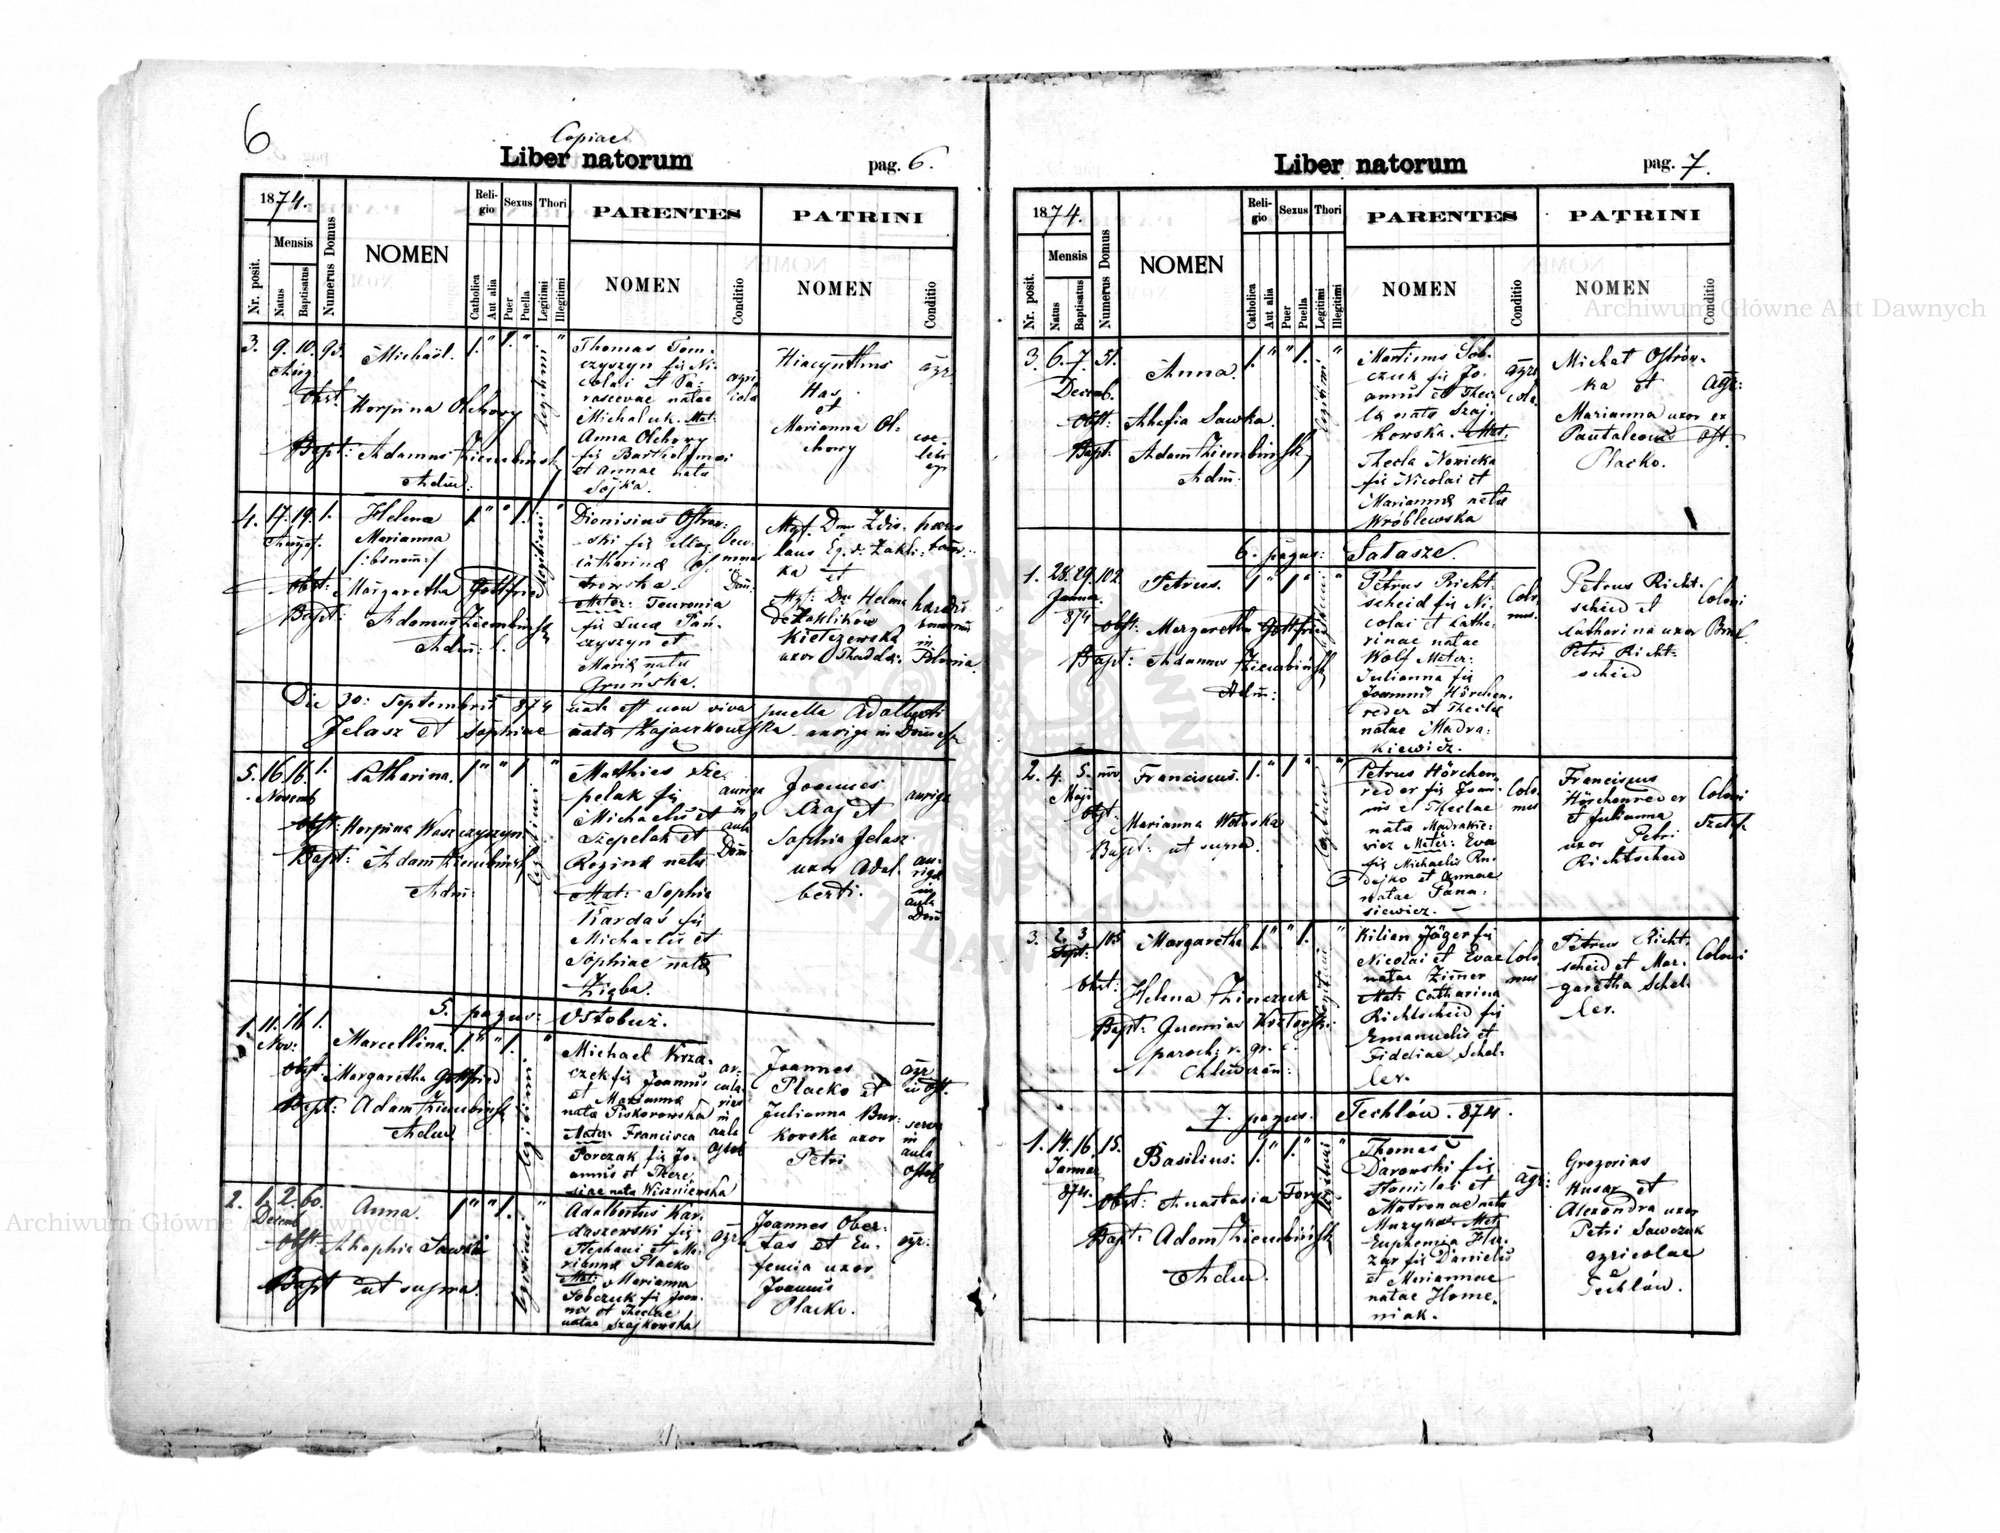 6
Copiae
Liber natorum
pag. 6.
1874.
Nr. posit.
Mensis
Natus
Baptisatus
Numerus Domus
NOMEN
Religio
Catholica
Aut alia
Sexus
Puer
Puella
Thori
Legitimi
Illegitimi
PARENTES
NOMEN
Conditio
PATRINI
NOMEN
Conditio
3. 9. 10. 93.
Aug.
Michaël.
1. " 1. " legitimi "
Obst. Horpina Olchowy
Bapt: Adamus Ziembiński
Adm:
Thomas Tom-
czyszyn fil Ni-
colai et Pa-
rascevae natae
Michaluk. Mat.
Anna Olchowy
fil Bartholomei
et Annae nata
Sójka.
agri
cola
Hiacynthus
Has
et
Marianna Ol-
chowy
agr
4. 17. 19. 1.
August.
Helena
Marianna
/:binom:/
1. " " 1. legitimi "
obst: Margaretha Gottfried
Bapt: Adamus Ziembiński
Adm: l.
Dionisius Ostrow-
ski fil
Catharina
Mater: Teuronia
fil Luca Pań-
czyszyn et
Maria nata
Gruńska.
Dom:
Mgf. Dnus Zdis-
laus Eq. d. Zakli-
ka et
Mgf: Dna Helena
de Zaklików
Kiełczewska
uxor Thaddei
in
Polonia
Die 30: Septembris 874 nata est non viva puella Adalberti
Jelasz et Sophiae nata Zajaczkowska auriga in Domessa
5. 16. 16. 1.
Novemb
Catharina.
1 " " 1 legitimi "
obst: Horpina Waszczyszyn
Bapt: Adam Ziembiński
Adm:
Mathies Sze-
pelak fil
Michaelis et
Szepelak et
Regina nata
Mat: Sophia
Kardaś fil
Michaelis et
Sophiae nata
Zięba.
auriga
in
aula
Dom
Joannes
Czaj et
Sophia Jelasz
uxor Adal-
berti.
auriga
au-
riga
in
aula
Dom
5. pagus: Ostobuż.
1. 11. 16. 1.
Nov:
Marcellina.
1. " " 1. legitimi "
obst: Margaretha Gottfried
Bapt: Adam Ziembiński
Adm
Michael Krza-
czek fil Joannis
et Marianna
nata Piskorowska
Mater: Francisca
Porczak fil Jo-
annis et There-
siae nata Wiszniewska
in
aula
Joannes
Placko et
Julianna Bur-
kovska uxor
Petri
agr
in Ost.
serva
in
aula
2. 1. 2. 60.
Decemb
Anna.
1 " " 1. legitimi "
Obst: Ahaphia Sawka
Bapt ut supra.
Adalbertus Kar-
daszewski fil
Stephani et Ma-
rianna Placko
Mat: Marianna
Sobczuk fil Joan-
nis et Theclae
natae Szajkowska
agr
Joannes Ober-
tas et Eu-
femia uxor
Joannis
Placko.
agr.
Liber natorum
pag. 7.
1874.
Nr. posit.
Mensis
Natus
Baptisatus
Numerus Domus
NOMEN
Religio
Catholica
Aut alia
Sexus
Puer
Puella
Thori
Legitimi
Illegitimi
PARENTES
NOMEN
Conditio
PATRINI
NOMEN
Conditio
3. 6. 7. 51.
Decemb.
Anna.
1. " " 1. legitimi "
obst: Ahafia Sawka
Bapt: Adam Ziembiński
Adm:
Martinus Sob-
czuk fil Jo-
annis et Thec-
la nata Szaj-
kowska. Mat.
Thecla Nowicka
fil Nicolai et
Marianna nata
Wróblewska
agri
cola.
Michał Ostrów-
ka et
Marianna uxor
Pantaleonis
Placko.
agr:
6. pagus: Sałasze.
1. 28. 29. 102.
Januar.
874
Petrus.
1 " 1 " legitimi "
obst: Margaretha Gottfried
Bapt: Adamus Ziembiński
Adm:
Petrus Richt-
scheid fil Ni-
colai et Catha-
rinae natae
Wolf Mater:
Julianna fil
Joannis Hörchen-
reder et Thecla
natae Madra-
kiewicz.
Colo-
nus.
Petrus Richt-
scheid et
Catharina uxor
Petri Richt-
scheid
Coloni
2. 4. 5.
Maji
Franciscus.
1. " 1 " legitimi "
obst. Marianna Wołoska
Bapt: ut supra.
Petrus Hörchen-
reder fil Joan-
nis et Theclae
nata Madrakie-
wicz Mater: Eva
fil Michaelis Ru-
dejko et Annae
natae Pana-
siewicz.
Colo-
nus
Franciscus
Hörchenreder
et Julianna
uxor Petri
Richtscheid
Coloni
3. 2. 3. 105
Sept:
Margaretha
1. " " 1. legitimi "
obst: Helena Zinczuk
Bapt: Jeremias Kostorski
paroch: r. gr. c.
Kilian Jäger fil
Nicolai et Evae
natae Zimer
Mat: Catharina
Richtscheid fil
Emanuelis et
Fideliae Schel-
ler.
Colo-
nus
Petrus Richt-
scheid et Mar-
garetha Schel-
ler.
Coloni
7. pagus. Techlów. 874.
1. 14. 16. 15.
Januar
874.
Basilius:
1. " 1. " "
Obst: Anastasia
Bapt: Adam Ziembiński
Adm.
Thomas
Darowski fil
Stanislai et
Matronae nata
Muzyka Mat.
Euphemia Hu-
zar fil Danielis
et Mariannae
natae Home-
niak.
agr:
Gregorius
Husar et
Alexandra uxor
Petri Sawczuk
agricolae
e
Techlów.
Archiwum Główne Akt Dawnych
Archiwum Główne Akt Dawnych